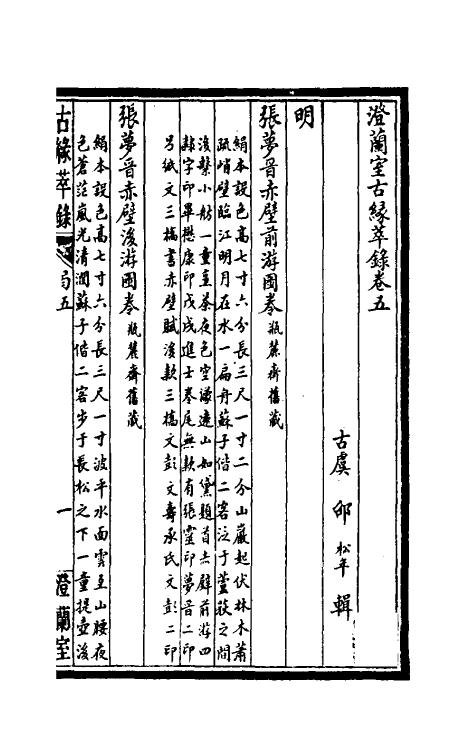 澄蘭室古緣萃錄卷五
古虞 邵松年 輯
明
張夢晉赤壁前游圖卷 瓶麓齋舊藏
絹本設色高七寸六分長三尺一寸二分山巖起伏林木蕭
疏峭壁臨江明月在水一扁舟蘇子偕二客泛于葦荻之間
後繫小舫一童煮茶夜色空濛遠山如黛題首赤壁前游四
隸字印畢懋康印戊戌進士卷尾無款有張靈印夢晉二印
另紙文三橋書赤壁賦後款三橋文彭文壽承氏文彭二印
張夢晉赤壁後游圖卷 瓶麓齋舊藏
絹本設色高七寸六分長三尺一寸波平水面雲至山腰夜
色蒼茫嵐光清潤蘇子偕二客步于長松之下一童提壺後
古緣萃錄
卷五
一
澄蘭室